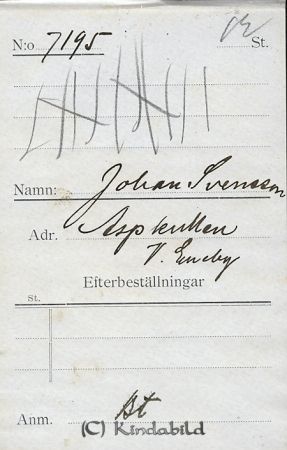 N:o 7195 12 St.
Namn: Johan Svensson
Adr. Aspkullen
V. Eneby
Efterbeställningar
st.
Anm. Bt
(C) Kindabild